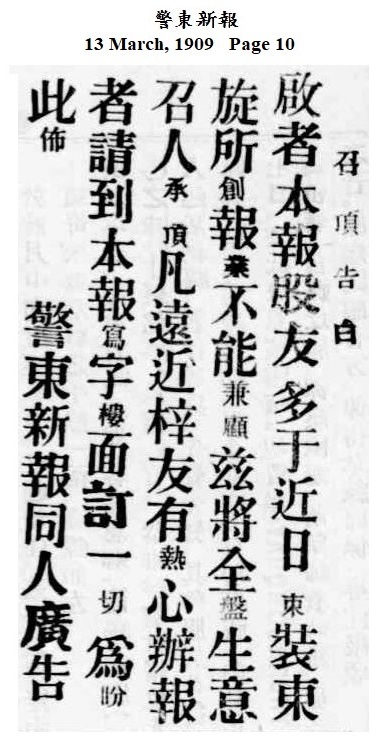 警東新報
13 March, 1909 Page 10
召頂告白
啟者本報股友多于近日束裝東
旋所創報業不能兼顧茲將全盤生意
召人承頂凡遠近梓友有熱心辦報
者請到本報寫字樓面訂一切為盼
此佈
警東新報同人廣告